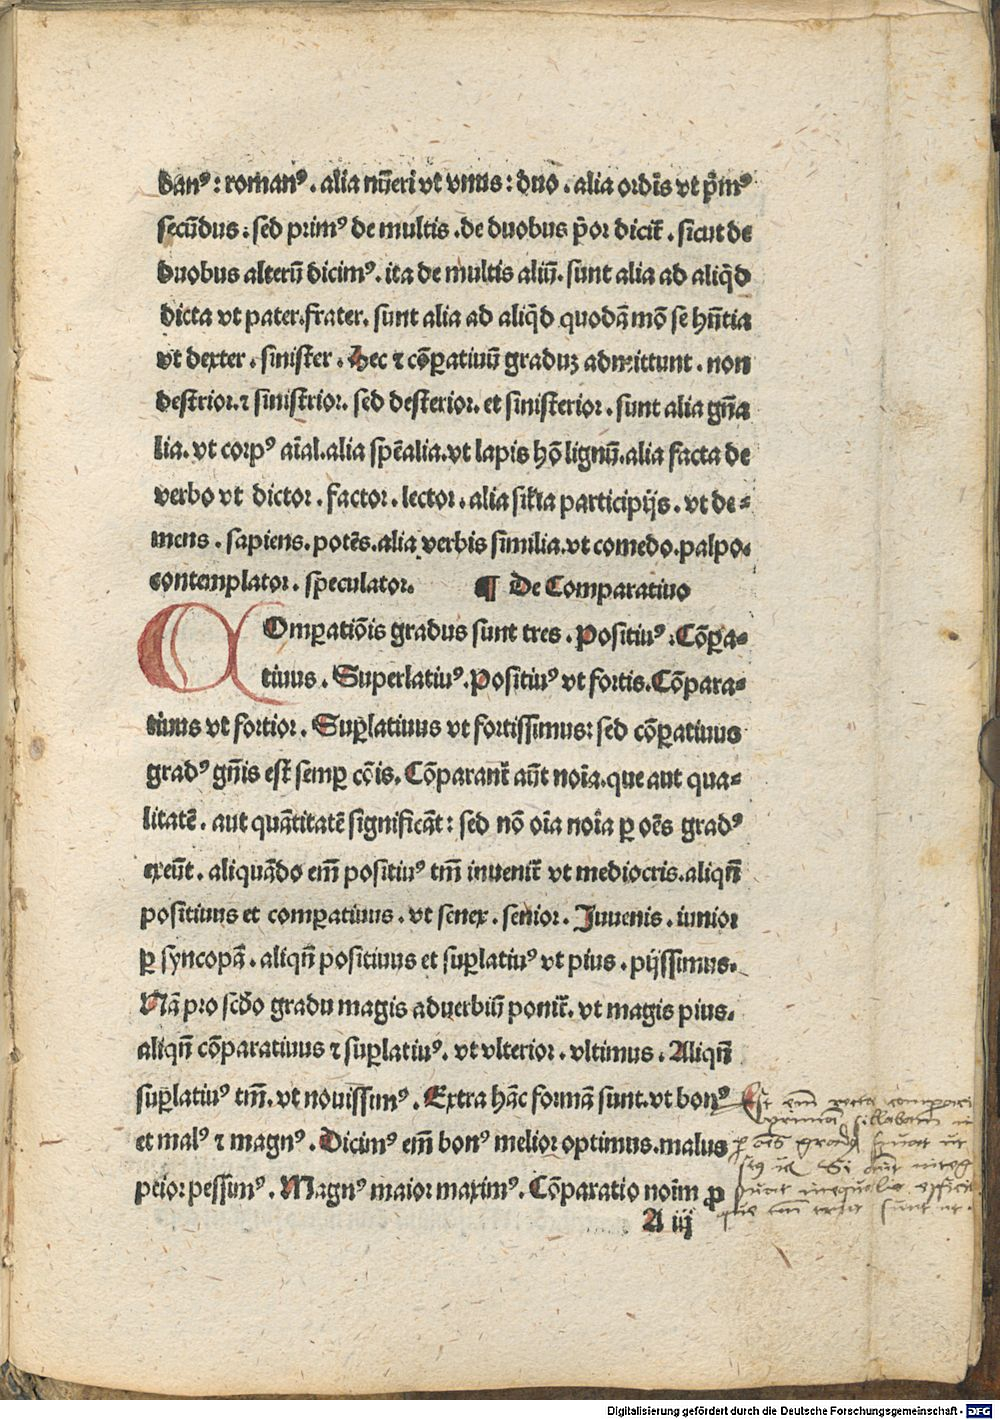 banꝰ : romanꝰ . alia nūeri vt vnus : duo . alia ordīs vt p̄mꝰ
secūdus : sed primꝰ de multis . de duobus p̄or dicit̄ . sicut de
duobus alterū dicimꝰ . ita de multis aliū . sunt alia ad aliq̄d
dicta vt pater . frater . sunt alia ad aliq̄d quodā mō se hn̄tia
vt dexter . sinister . Hec ⁊ cōꝑatiuū graduꝫ admittunt . non
destrior . ⁊ sinistrior . sed desterior . et sinisterior . sunt alia gn̄a
lia . vt corpꝰ aīal . alia spēalia . vt lapis hō lignū . alia facta de
verbo vt dictor . factor . lector . alia sil̄ia participijs . vt de⸗
mens . sapiens . potēs . alia verbis similia . vt comedo . palpo .
contemplator . speculator . ¶ De Comparatiuo
COmꝑatiōis gradus sunt tres . Positiuꝰ . Cōꝑa⸗
tiuus . Superlatiuꝰ . Positiuꝰ vt fortis . Cōpara⸗
tiuus vt fortior . Suꝑlatiuus vt fortissimus : sed cōꝑatiuus
gradꝰ gn̄is est semꝑ cōis . Cōparant̄ aūt noīa . que aut qua⸗
litatē . aut quātitatē significāt : sed nō oīa noīa ꝑ oēs gradꝰ
exeūt . aliquādo em̄ positiuꝰ tm̄ inuenit̄ vt mediocris . aliqn̄
positiuus et comꝑatiuus . vt senex . senior . Juuenis . iunior
ꝑ syncopā . aliqn̄ positiuus et suꝑlatiuꝰ vt pius . pijssimus .
Nā pro scd̄o gradu magis aduerbiū ponit̄ . vt magis pius .
aliqn̄ cōparatiuus ⁊ suꝑlatiuꝰ . vt vlterior . vltimus . Aliqn̄
suꝑlatiuꝰ tm̄ . vt nouissimꝰ . Extra hāc formā sunt . vt bonꝰ
et malꝰ ⁊ magnꝰ . Dicimꝰ em̄ bonꝰ melior optimus . malus
peior pessimꝰ . Magnꝰ maior maximꝰ . Cōparatio noīm ꝓ
A iij
Est em̄ comparari
primā sillabam
ꝑ oēs gradꝰ
Si aūt
inequale
que em̄ sunt
Digitalisierung gefördert durch die Deutsche Forschungsgemeinschaft - DFG